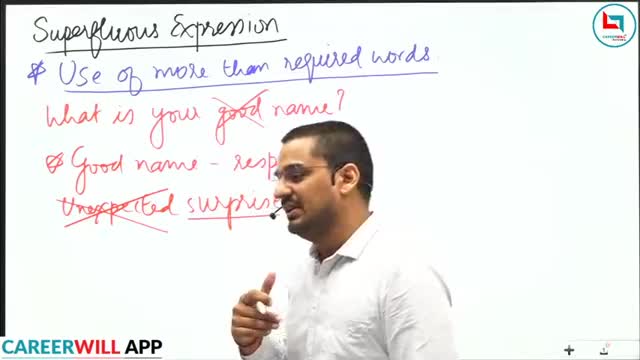 Superfluous Expression
* Use of more than required words.
What is your good name?
* Good name - resp
Unexpected surpris
CAREERWILL
CAREERWILL APP